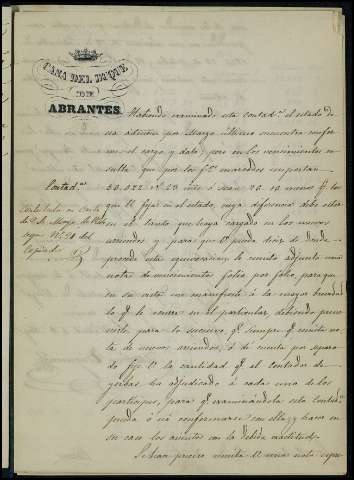 CASA DEL DUQUE
DE
ABRANTES.
Contad.ª
Habiendo examinado esta Contad.ª el estado de
su admon por Marzo último encuentra confor-
mes el cargo y data; pero en los vencimientos
resulta que por los f.s marcados importan
50.222 r.s 29 más ó sean 20 10 menos q. los
que V. fija en el estado, cuya diferencia debe estar
en el tanto que haya cargado en los nuevos
arriendos y para que V. pueda de donde
procede esta equivocacion le remito adjunta una
nota de vencimientos folio por folio, para que
en su vista me manifieste á la mayor brevedad
lo q. le conste en el particular, debiendo preve-
nirle, para lo sucesivo q. siempre q. remita no-
ta de nuevos arriendos, ó de cuenta por separa-
do fije V. la cantidad q. el contador de
yerbas, ha adjudicado á cada uno de los
participes, para q. examinándola esta Contad.ª
pueda ó nó conformarse con ella, y hacer en
su caso los asientos con la debida exactitud.
Se hace preciso remita V. una nota espre-